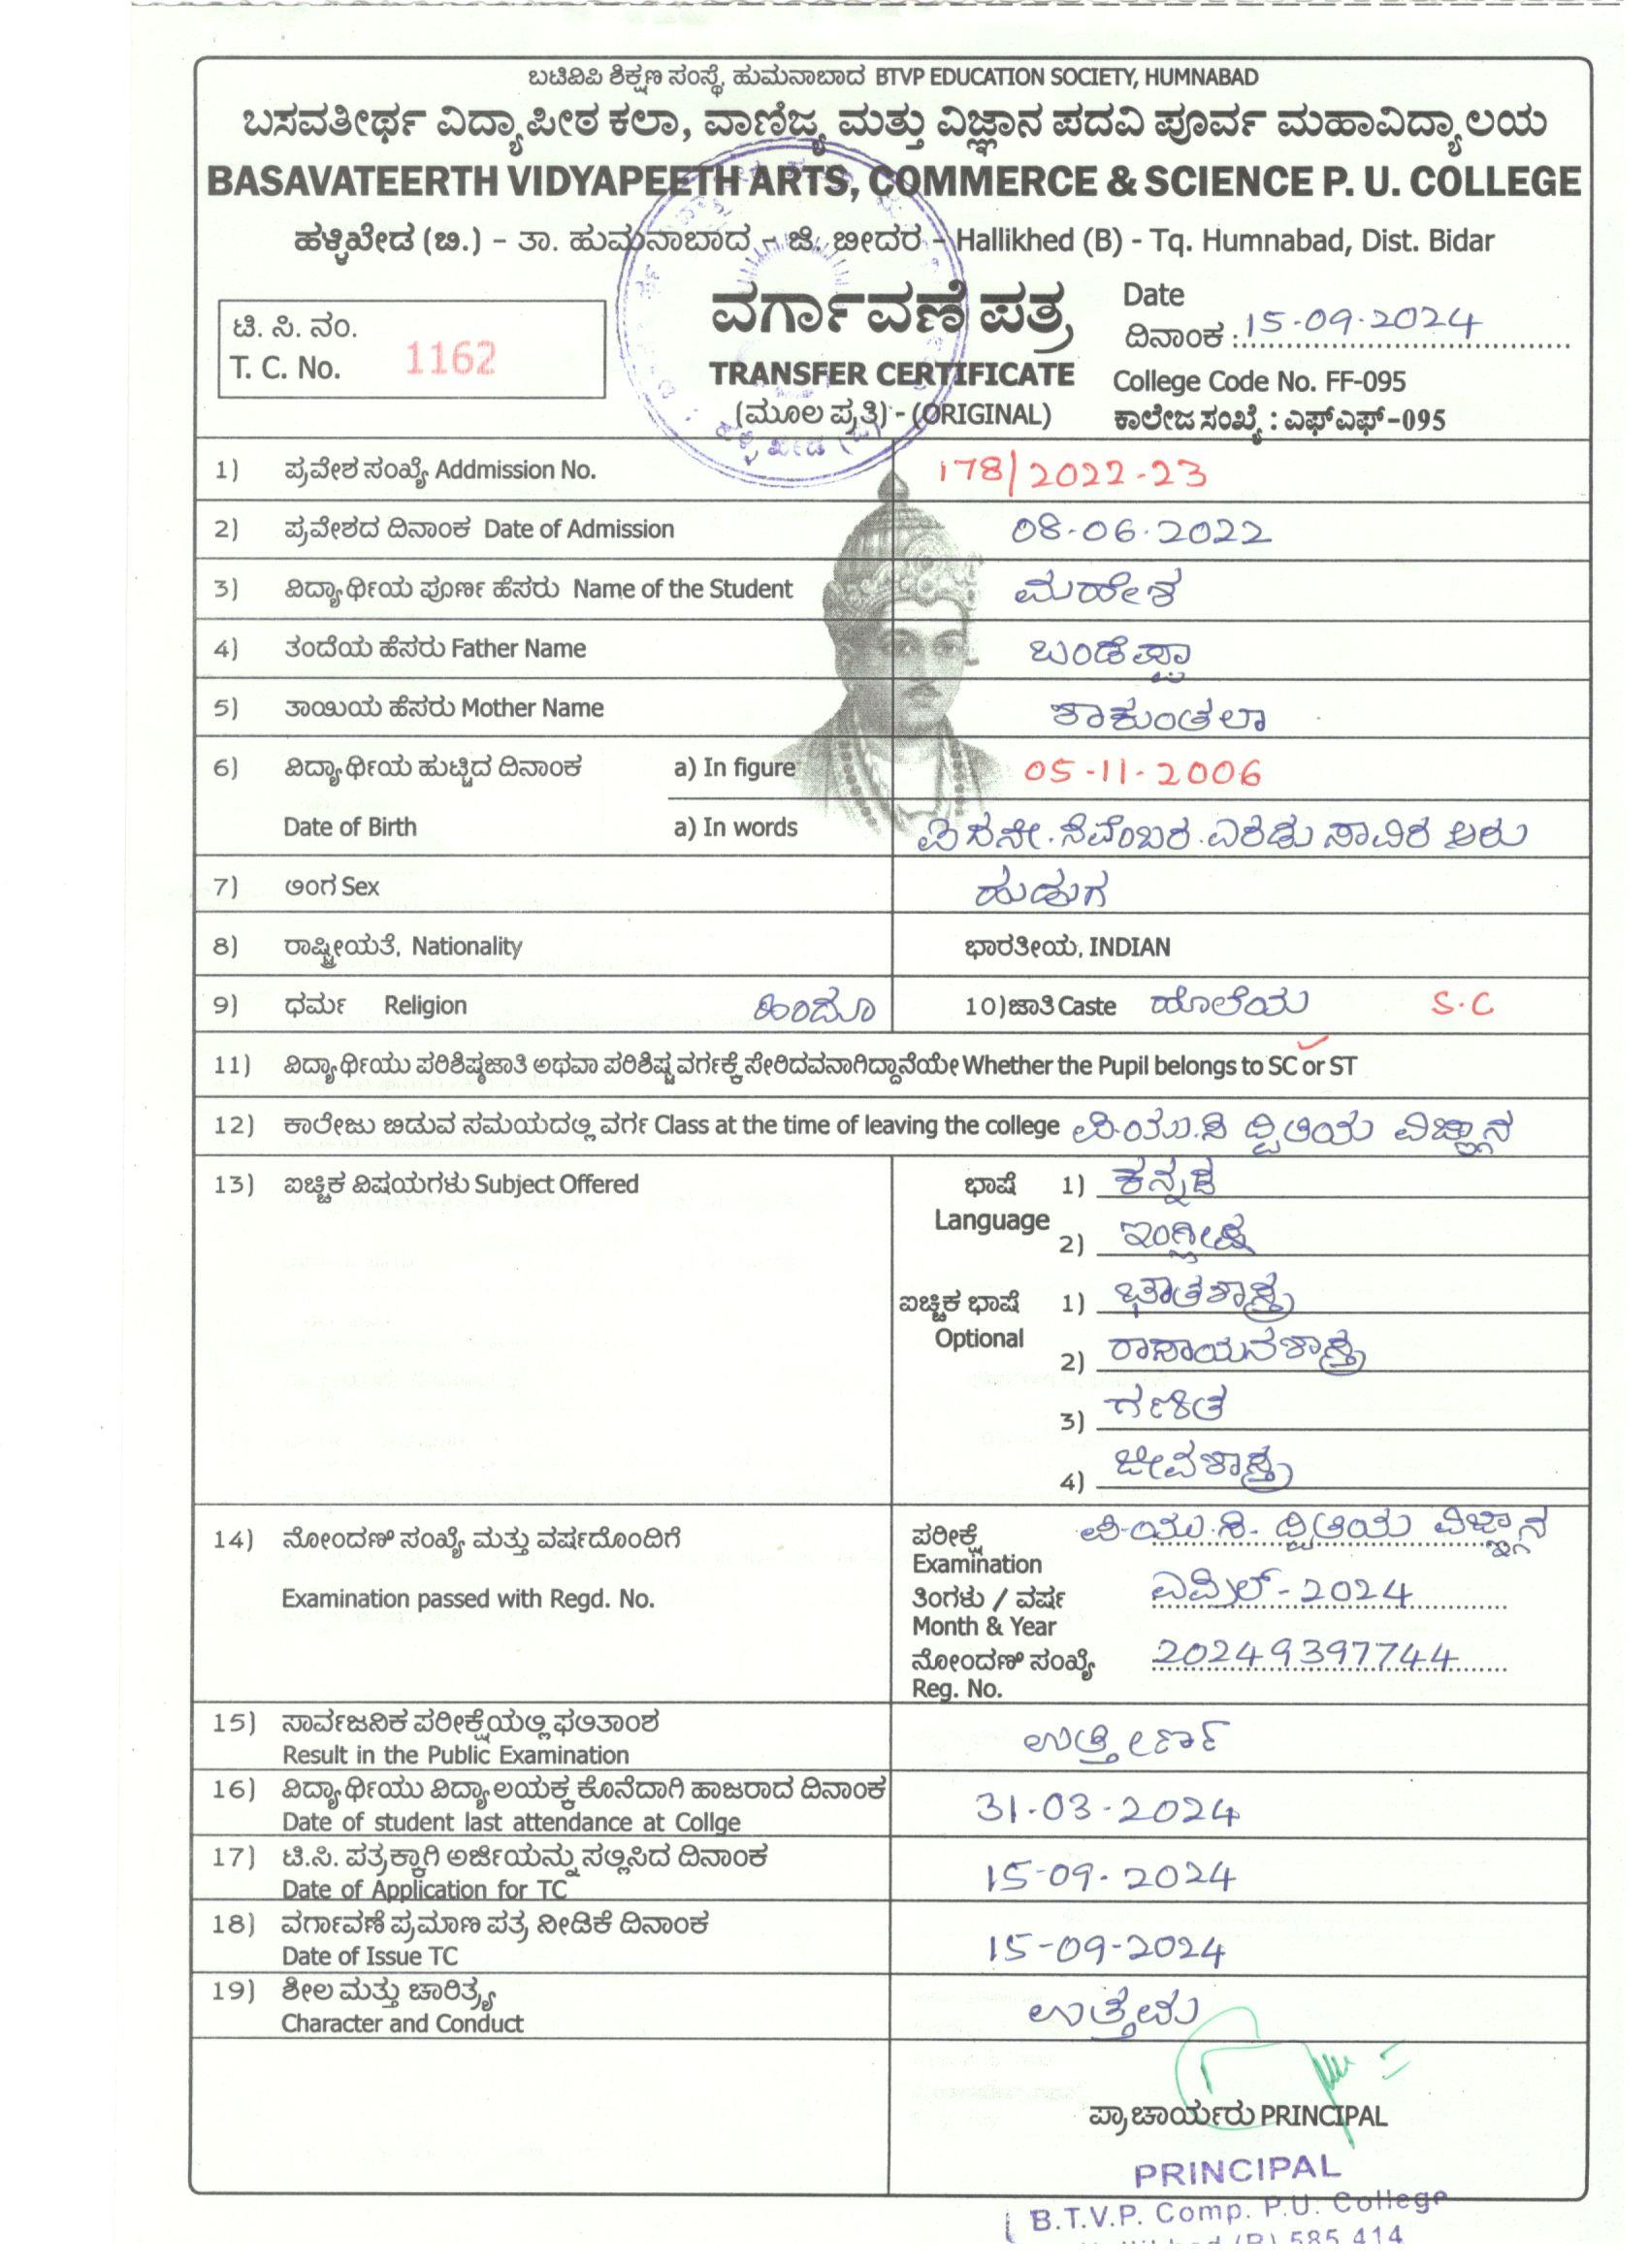 ಬಟಿವಿಪಿ ಶಿಕ್ಷಣ ಸಂಸ್ಥೆ, ಹುಮನಾಬಾದ BTVP EDUCATION SOCIETY, HUMNABAD
ಬಸವತೀರ್ಥ ವಿದ್ಯಾಪೀಠ ಕಲಾ, ವಾಣಿಜ್ಯ ಮತ್ತು ವಿಜ್ಞಾನ ಪದವಿ ಪೂರ್ವ ಮಹಾವಿದ್ಯಾಲಯ
BASAVATEERTH VIDYAPEETH ARTS, COMMERCE & SCIENCE P. U. COLLEGE
ಹಳ್ಳಿಖೇಡ (ಬಿ.) - ತಾ. ಹುಮನಾಬಾದ - ಜಿ. ಬೀದರ - Hallikhed (B) - Tq. Humnabad, Dist. Bidar
ಟಿ. ಸಿ. ನಂ.
T. C. No. 1162
ವರ್ಗಾವಣೆ ಪತ್ರ
TRANSFER CERTIFICATE
(ಮೂಲ ಪ್ರತಿ) - (ORIGINAL)
Date
ದಿನಾಂಕ : 15-09-2024
College Code No. FF-095
ಕಾಲೇಜ ಸಂಖ್ಯೆ : ಎಫ್ಎಫ್-095
1) ಪ್ರವೇಶ ಸಂಖ್ಯೆ Addmission No. 178/2022-23
2) ಪ್ರವೇಶದ ದಿನಾಂಕ Date of Admission 08-06-2022
3) ವಿದ್ಯಾರ್ಥಿಯ ಪೂರ್ಣ ಹೆಸರು Name of the Student ಮಹೇಶ
4) ತಂದೆಯ ಹೆಸರು Father Name ಬಂಡೆಪ್ಪಾ
5) ತಾಯಿಯ ಹೆಸರು Mother Name ಶಾಕುಂತಲಾ
6) ವಿದ್ಯಾರ್ಥಿಯ ಹುಟ್ಟಿದ ದಿನಾಂಕ a) In figure 05-11-2006
Date of Birth a) In words ನವೆಂಬರ ಎರಡು ಸಾವಿರ ಆರು
7) ಲಿಂಗ Sex ಹುಡುಗ
8) ರಾಷ್ಟ್ರೀಯತೆ, Nationality ಭಾರತೀಯ, INDIAN
9) ಧರ್ಮ Religion ಹಿಂದೂ 10) ಜಾತಿ Caste ಹೊಲೆಯ S.C
11) ವಿದ್ಯಾರ್ಥಿಯು ಪರಿಶಿಷ್ಠಜಾತಿ ಅಥವಾ ಪರಿಶಿಷ್ಟ ವರ್ಗಕ್ಕೆ ಸೇರಿದವನಾಗಿದ್ದಾನೆಯೇ Whether the Pupil belongs to SC or ST
12) ಕಾಲೇಜು ಬಿಡುವ ಸಮಯದಲ್ಲಿ ವರ್ಗ Class at the time of leaving the college ಪಿ.ಯು.ಸಿ ದ್ವಿತಿಯ ವಿಜ್ಞಾನ
13) ಐಚ್ಛಿಕ ವಿಷಯಗಳು Subject Offered
ಭಾಷೆ 1) ಕನ್ನಡ
Language 2) ಇಂಗ್ಲೀಷ
ಐಚ್ಛಿಕ ಭಾಷೆ 1) ಭೌತಶಾಸ್ತ್ರ
Optional 2) ರಾಸಾಯನಶಾಸ್ತ್ರ
3) ಗಣಿತ
4) ಜೀವಶಾಸ್ತ್ರ
14) ನೋಂದಣಿ ಸಂಖ್ಯೆ ಮತ್ತು ವರ್ಷದೊಂದಿಗೆ
Examination passed with Regd. No.
ಪರೀಕ್ಷೆ ಪಿ.ಯು.ಸಿ. ದ್ವಿತಿಯ ವಿಜ್ಞಾನ
Examination
ತಿಂಗಳು / ವರ್ಷ ಎಪ್ರಿಲ್ - 2024
Month & Year
ನೋಂದಣಿ ಸಂಖ್ಯೆ 20249397744
Reg. No.
15) ಸಾರ್ವಜನಿಕ ಪರೀಕ್ಷೆಯಲ್ಲಿ ಫಲಿತಾಂಶ
Result in the Public Examination ಉತ್ತೀರ್ಣ
16) ವಿದ್ಯಾರ್ಥಿಯು ವಿದ್ಯಾಲಯಕ್ಕ ಕೊನೆದಾಗಿ ಹಾಜರಾದ ದಿನಾಂಕ
Date of student last attendance at Collge 31-03-2024
17) ಟಿ.ಸಿ. ಪತ್ರಕ್ಕಾಗಿ ಅರ್ಜಿಯನ್ನು ಸಲ್ಲಿಸಿದ ದಿನಾಂಕ
Date of Application for TC 15-09-2024
18) ವರ್ಗಾವಣೆ ಪ್ರಮಾಣ ಪತ್ರ ನೀಡಿಕೆ ದಿನಾಂಕ
Date of Issue TC 15-09-2024
19) ಶೀಲ ಮತ್ತು ಚಾರಿತ್ರ್ಯ
Character and Conduct ಉತ್ತಮ
ಪ್ರಾಚಾರ್ಯರು PRINCIPAL
PRINCIPAL
B.T.V.P. Comp. P.U. College
(B) 585 414